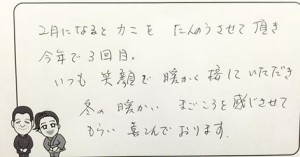 2月になると カニを たんのうさせて 頂き
今年で3回目。
いつも 笑顔で 暖かく 接していただき
冬の 暖かい まごころを 感じさせて
もらい 喜んでおります。